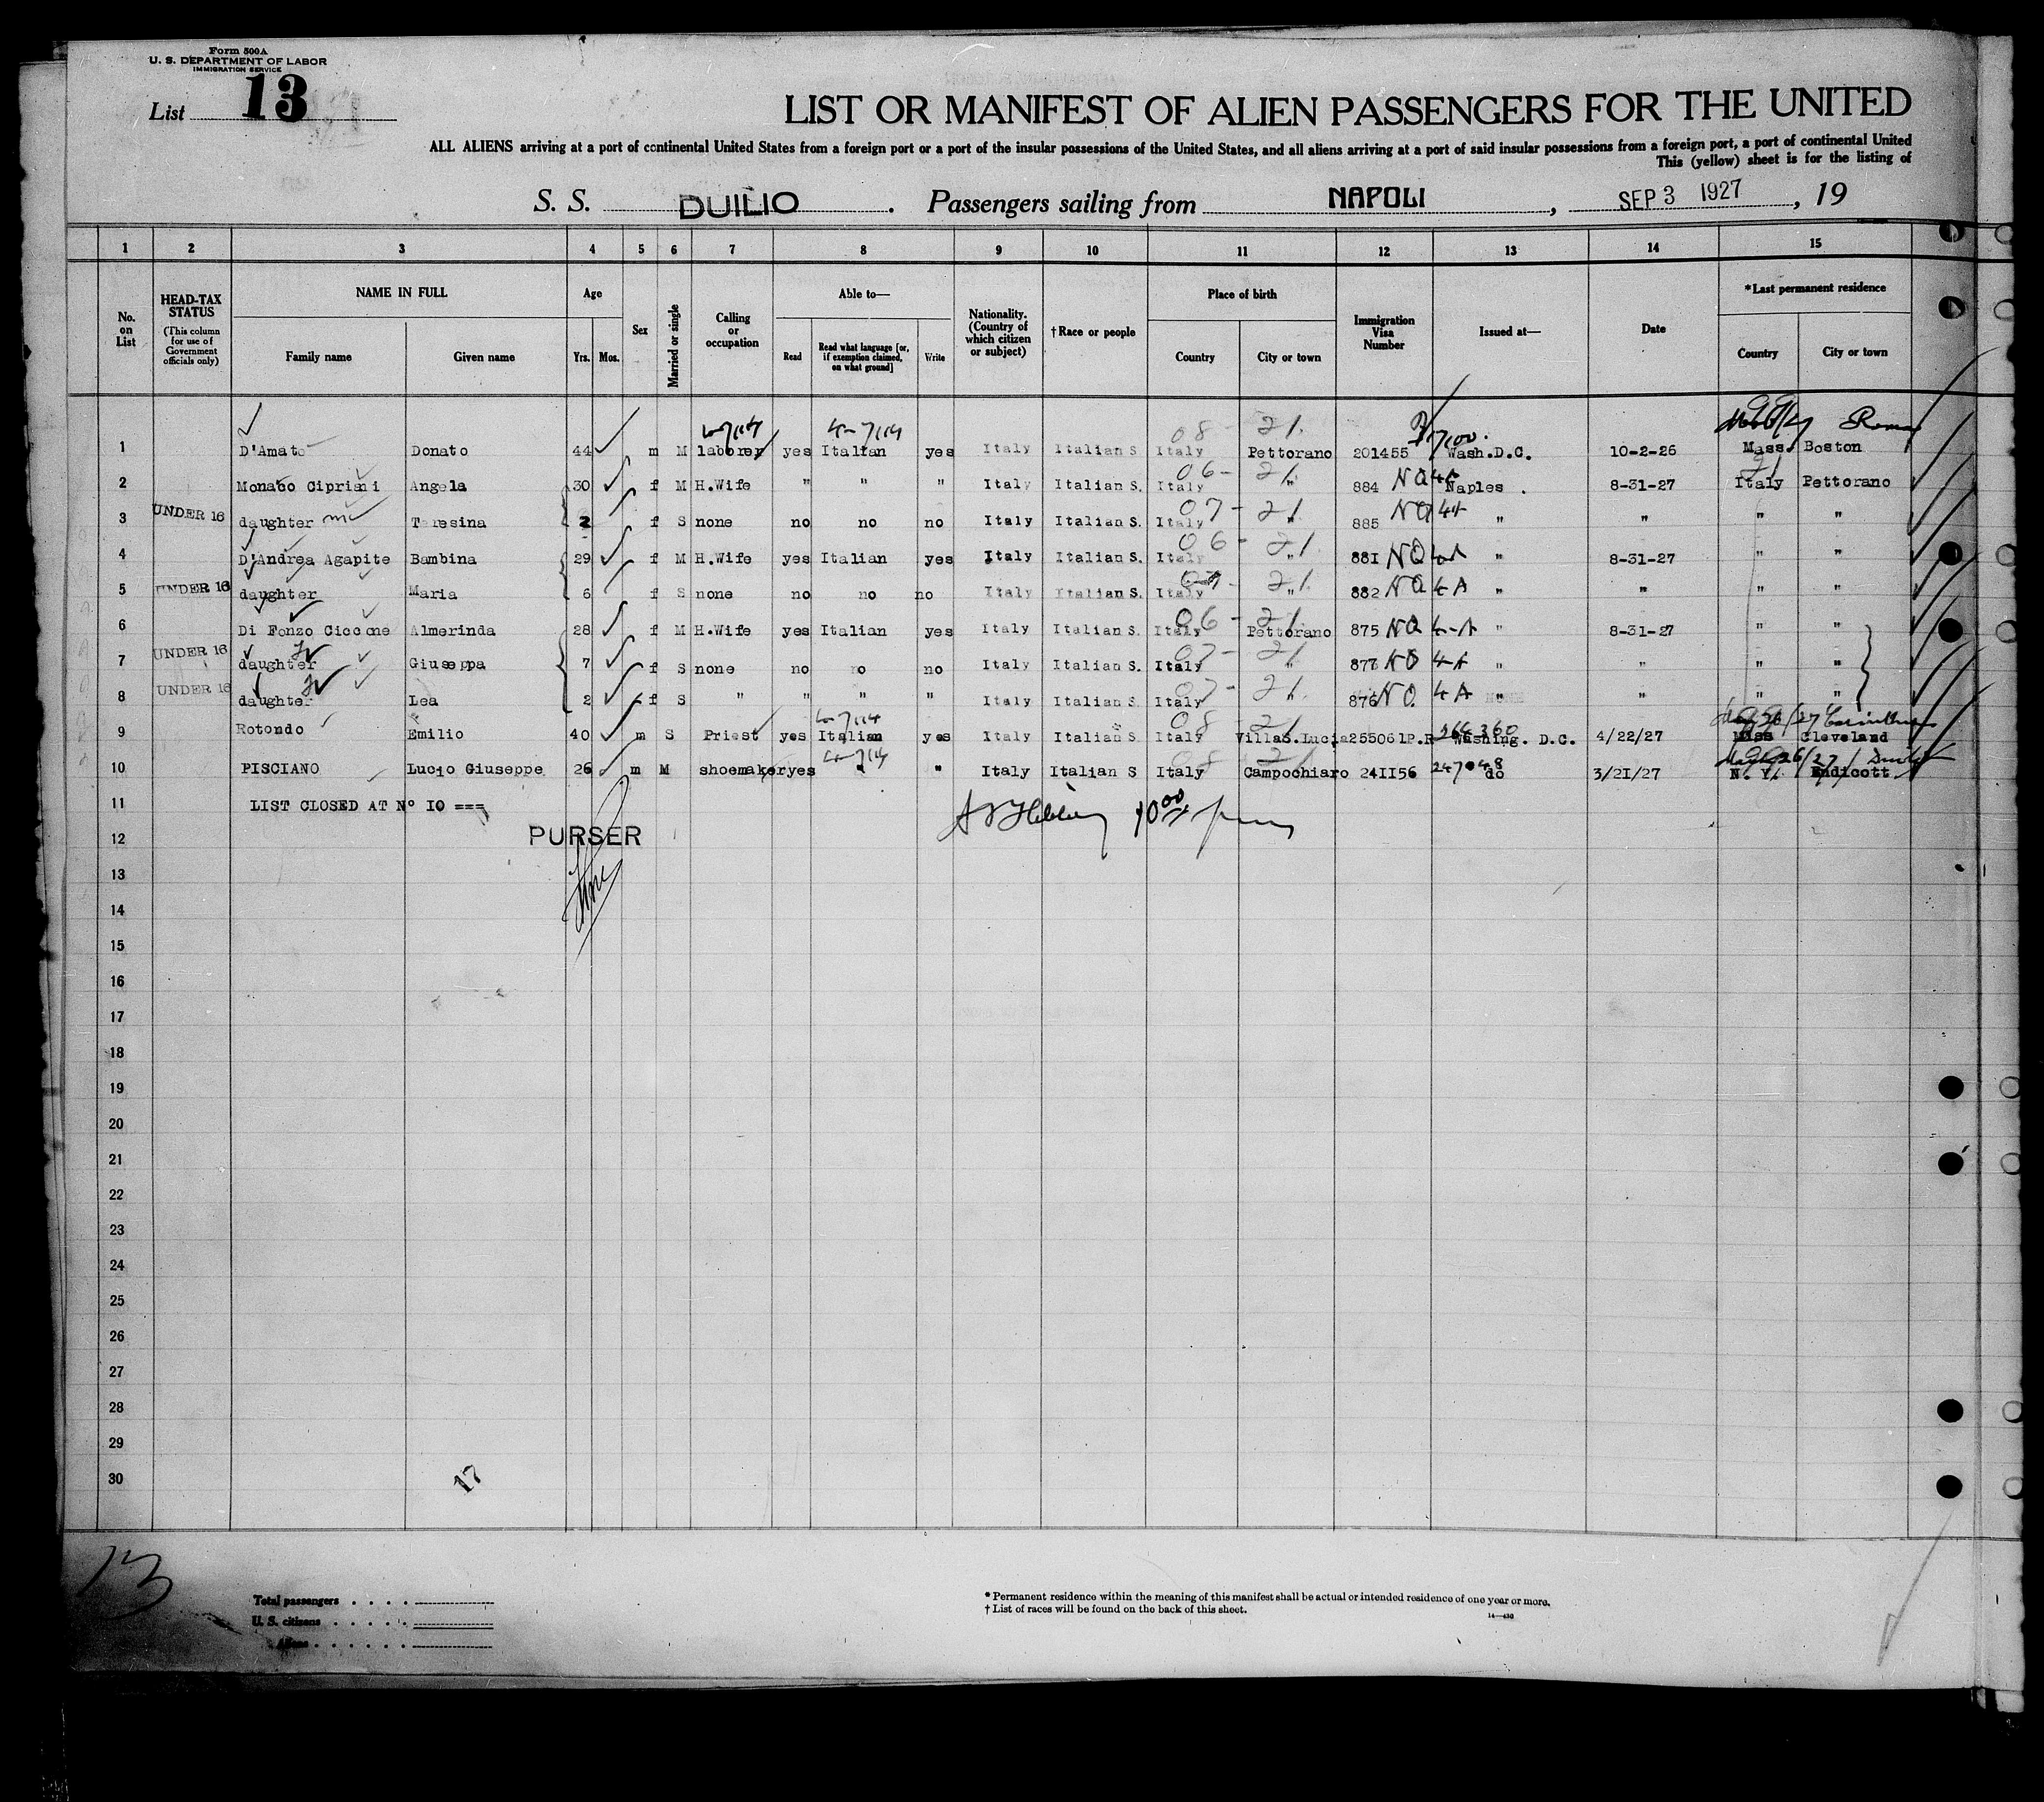 Form 500A
U. S. DEPARTMENT OF LABOR
IMMIGRATION SERVICE
List 13
LIST OR MANIFEST OF ALIEN PASSENGERS FOR THE UNITED
ALL ALIENS arriving at a port of continental United States from a foreign port or a port of the insular possessions of the United States, and all aliens arriving at a port of said insular possessions from a foreign port, a port of continental United
This (yellow) sheet is for the listing of
S. S. DUILIO. Passengers sailing from NAPOLI, SEP 3 1927, 19
1 2 3 4 5 6 7 8 9 10 11 12 13 14 15
No. on List
HEAD-TAX STATUS
(This column for use of Government officials only)
NAME IN FULL
Family name Given name
Age
Yrs. Mos.
Sex
Married or single
Calling or occupation
Able to—
Read Read what language [or, if exemption claimed, on what ground] Write
Nationality. (Country of which citizen or subject)
†Race or people
Place of birth
Country City or town
Immigration Visa Number
Issued at—
Date
*Last permanent residence
Country City or town
4-7/14 4-7/14 08 - 21. Roma
1 D'Amato Donato 44 m M laborer yes Italian yes Italy Italian S Italy Pettorano 201455 Wash.D.C. 10-2-26 Mass. Boston
06 - 21
2 Monaco Cipriani Angela 30 f M H.Wife " " " Italy Italian S. Italy " 884 NQ 4A Naples . 8-31-27 Italy Pettorano
07 - 21
3 UNDER 16 daughter Teresina 2 f S none no no no Italy Italian S. Italy " 885 NQ 4A " " " "
06 - 21
4 D'Andrea Agapite Bambina 29 f M H.Wife yes Italian yes Italy Italian S. Italy " 881 NQ 4A " 8-31-27 " "
07 - 21
5 UNDER 16 daughter Maria 6 f S none no no no Italy Italian S. Italy " 882 NQ 4A " " " "
06 - 21
6 Di Fonzo Ciccone Almerinda 28 f M H.Wife yes Italian yes Italy Italian S. Italy Pettorano 875 NQ 4-A " 8-31-27 " "
07 - 21
7 UNDER 16 daughter Giuseppa 7 f S none no no no Italy Italian S. Italy " 877 NQ 4-A " " " "
07 - 21
8 UNDER 16 daughter Lea 2 f S " " " " Italy Italian S. Italy " 876 NQ. 4A " " " "
4-7/14 08 - 21 266360
9 Rotondo Emilio 40 m S Priest yes Italian yes Italy Italian S Italy VillaS.Lucia 255061P.R Washing. D.C. 4/22/27 Miss Cleveland
4-7/14 08 21 247048
10 PISCIANO Lucio Giuseppe 26 m M shoemaker yes " " Italy Italian S Italy Campochiaro 24II56 do 3/2I/27 N. Y. Endicott
11 LIST CLOSED AT N° I0 ===
12 PURSER
13
14
15
16
17
18
19
20
21
22
23
24
25
26
27
28
29
30
17
13
Total passengers
U. S. citizens
Aliens
* Permanent residence within the meaning of this manifest shall be actual or intended residence of one year or more.
† List of races will be found on the back of this sheet.
14—430